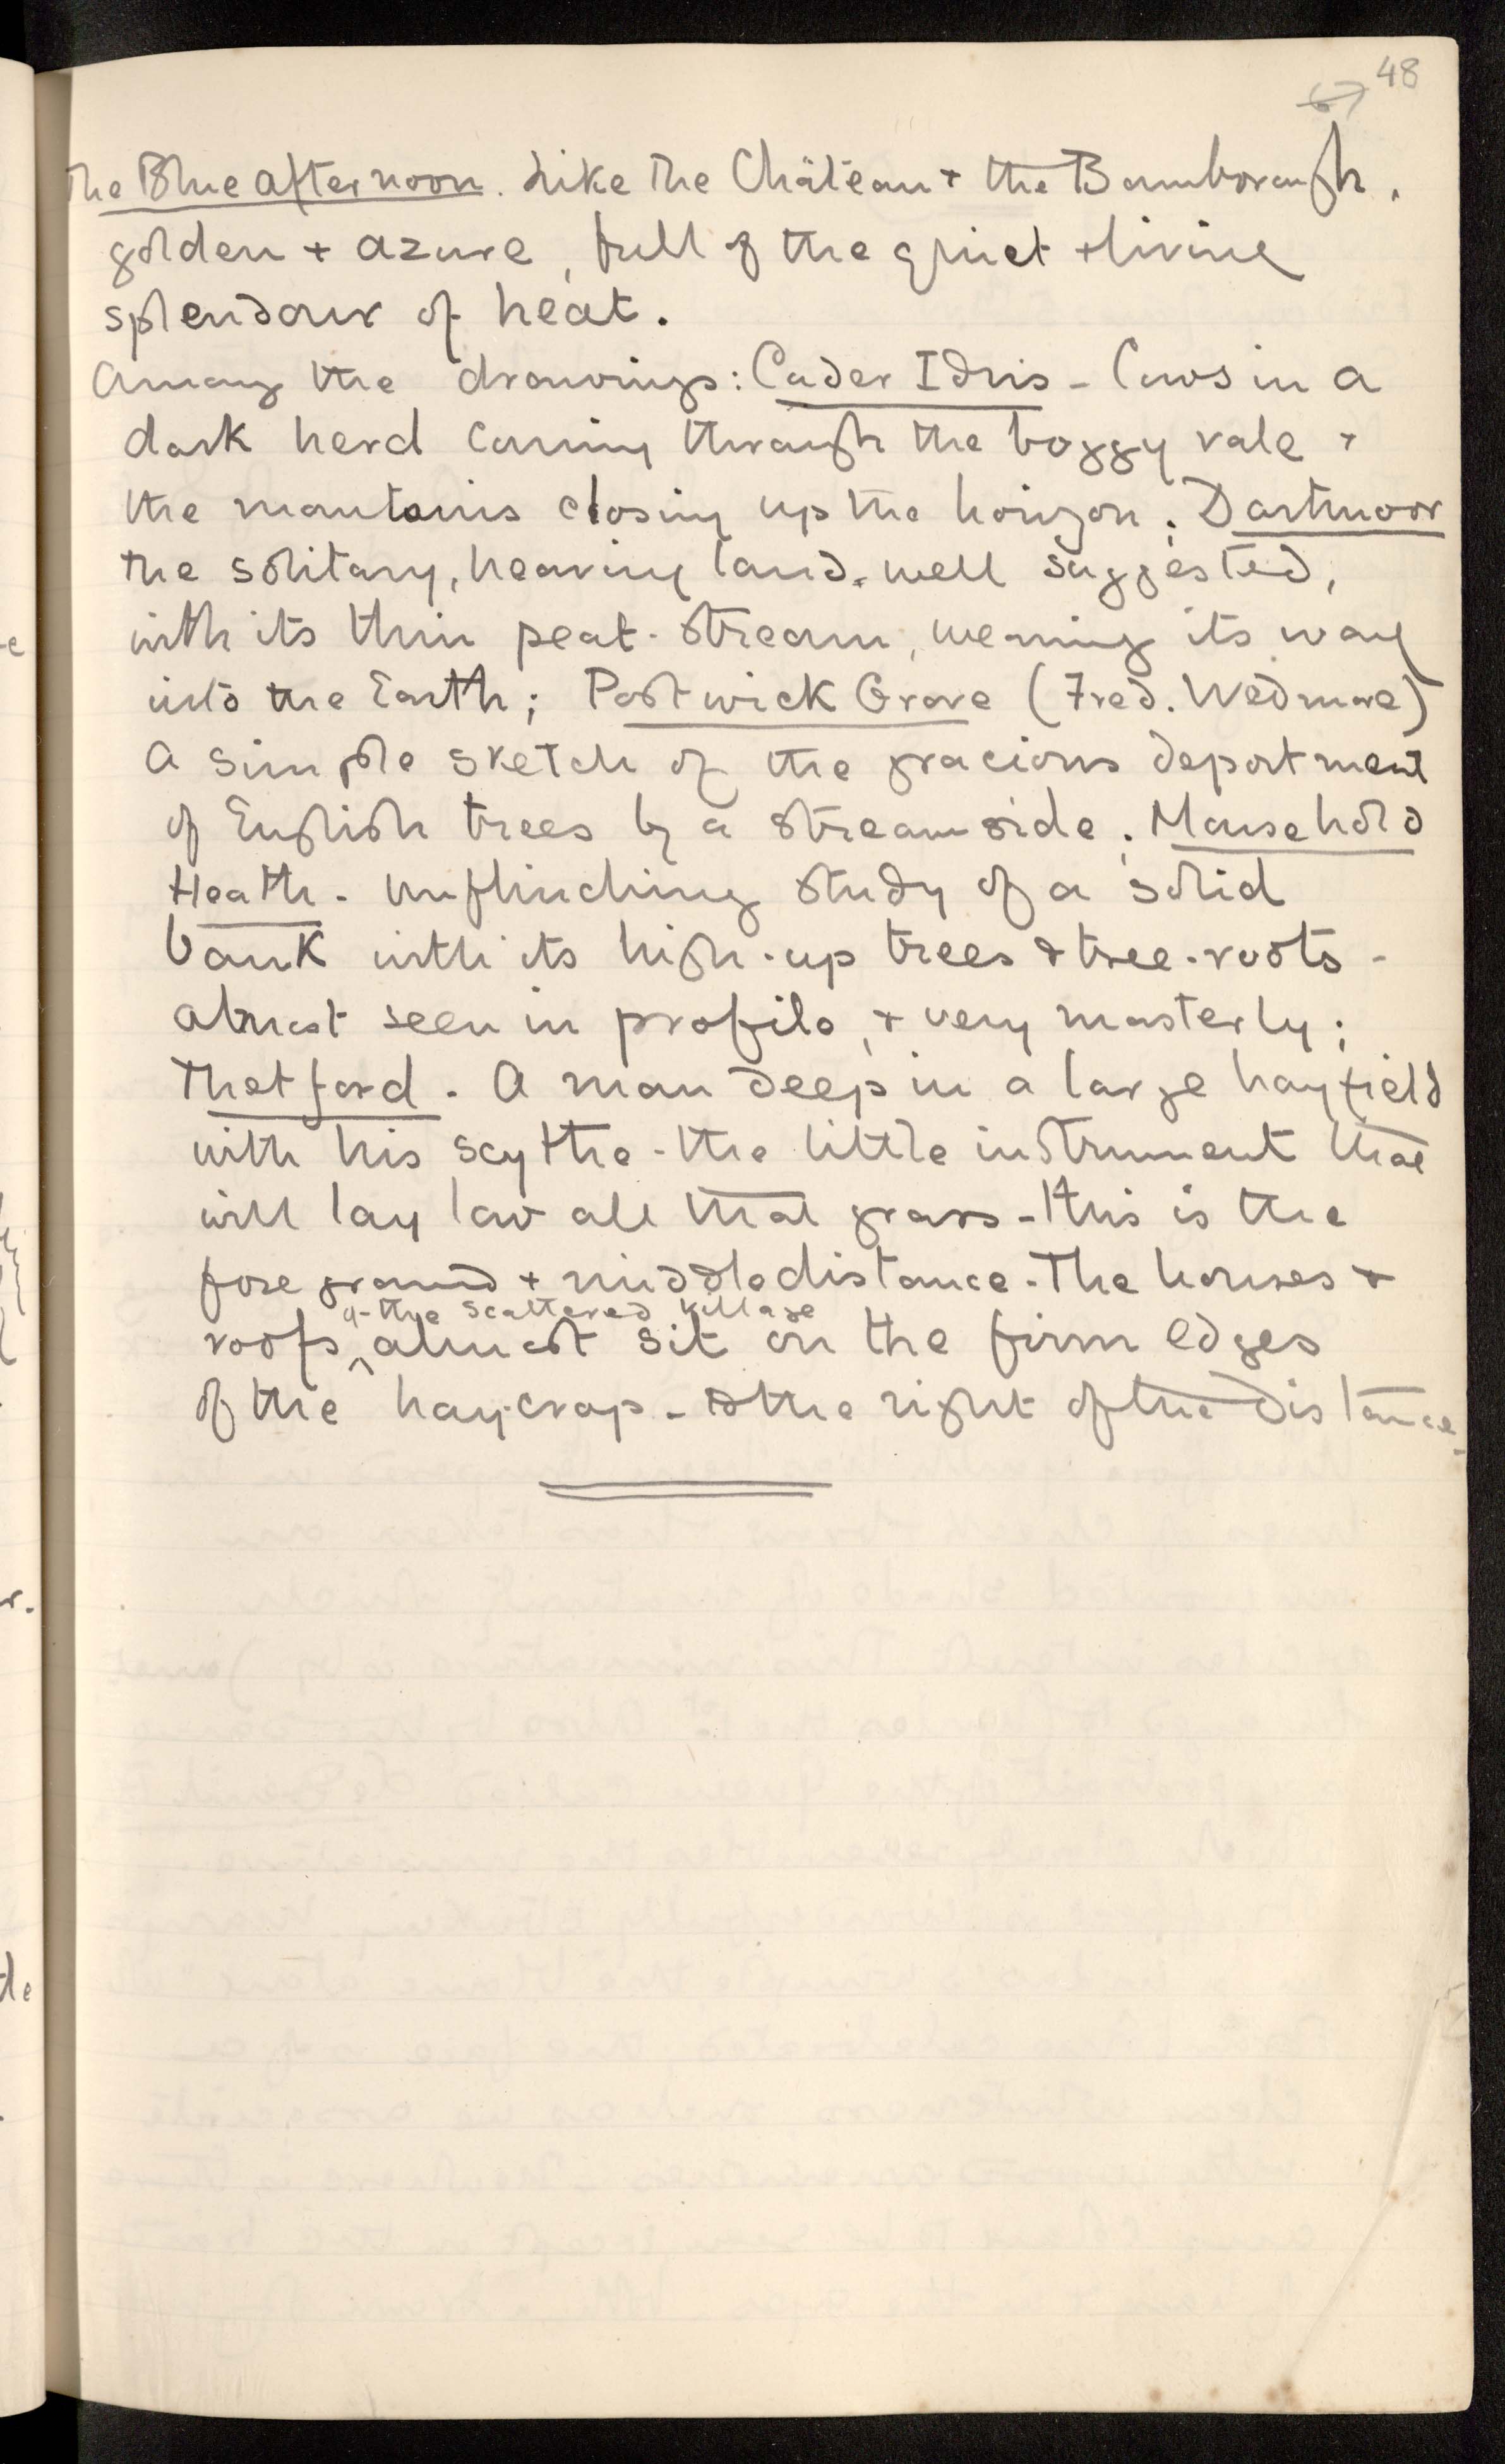 48
The Blue afternoon. Like the Château + the Bamborough.
golden + azure, full of the quiet + living
splendour of heat.
Among the drawings: Cader Idris - Cows in a
dark herd coming through the boggy vale +
the mountains closing up the horizon; Dartmoor
the solitary, heaving land, well suggested,
with its thin peat-stream, worming its way
into the Earth; Postwick Grove (Fred. Wedmore)
A simple sketch of the gracious deportment
of English trees by a stream side; Mousehold
Heath. Unflinching study of a solid
bank with its high-up trees & tree-roots -
almost seen in profile, + very masterly;
Thetford. A man deep in a large hayfield
with his scythe - the little instrument that
will lay low all that grass - this is the
fore ground + middle distance. The houses +
of the scattered village
roofs ^ almost sit on the firm edges
of the hay-crop - to the right of the distance.